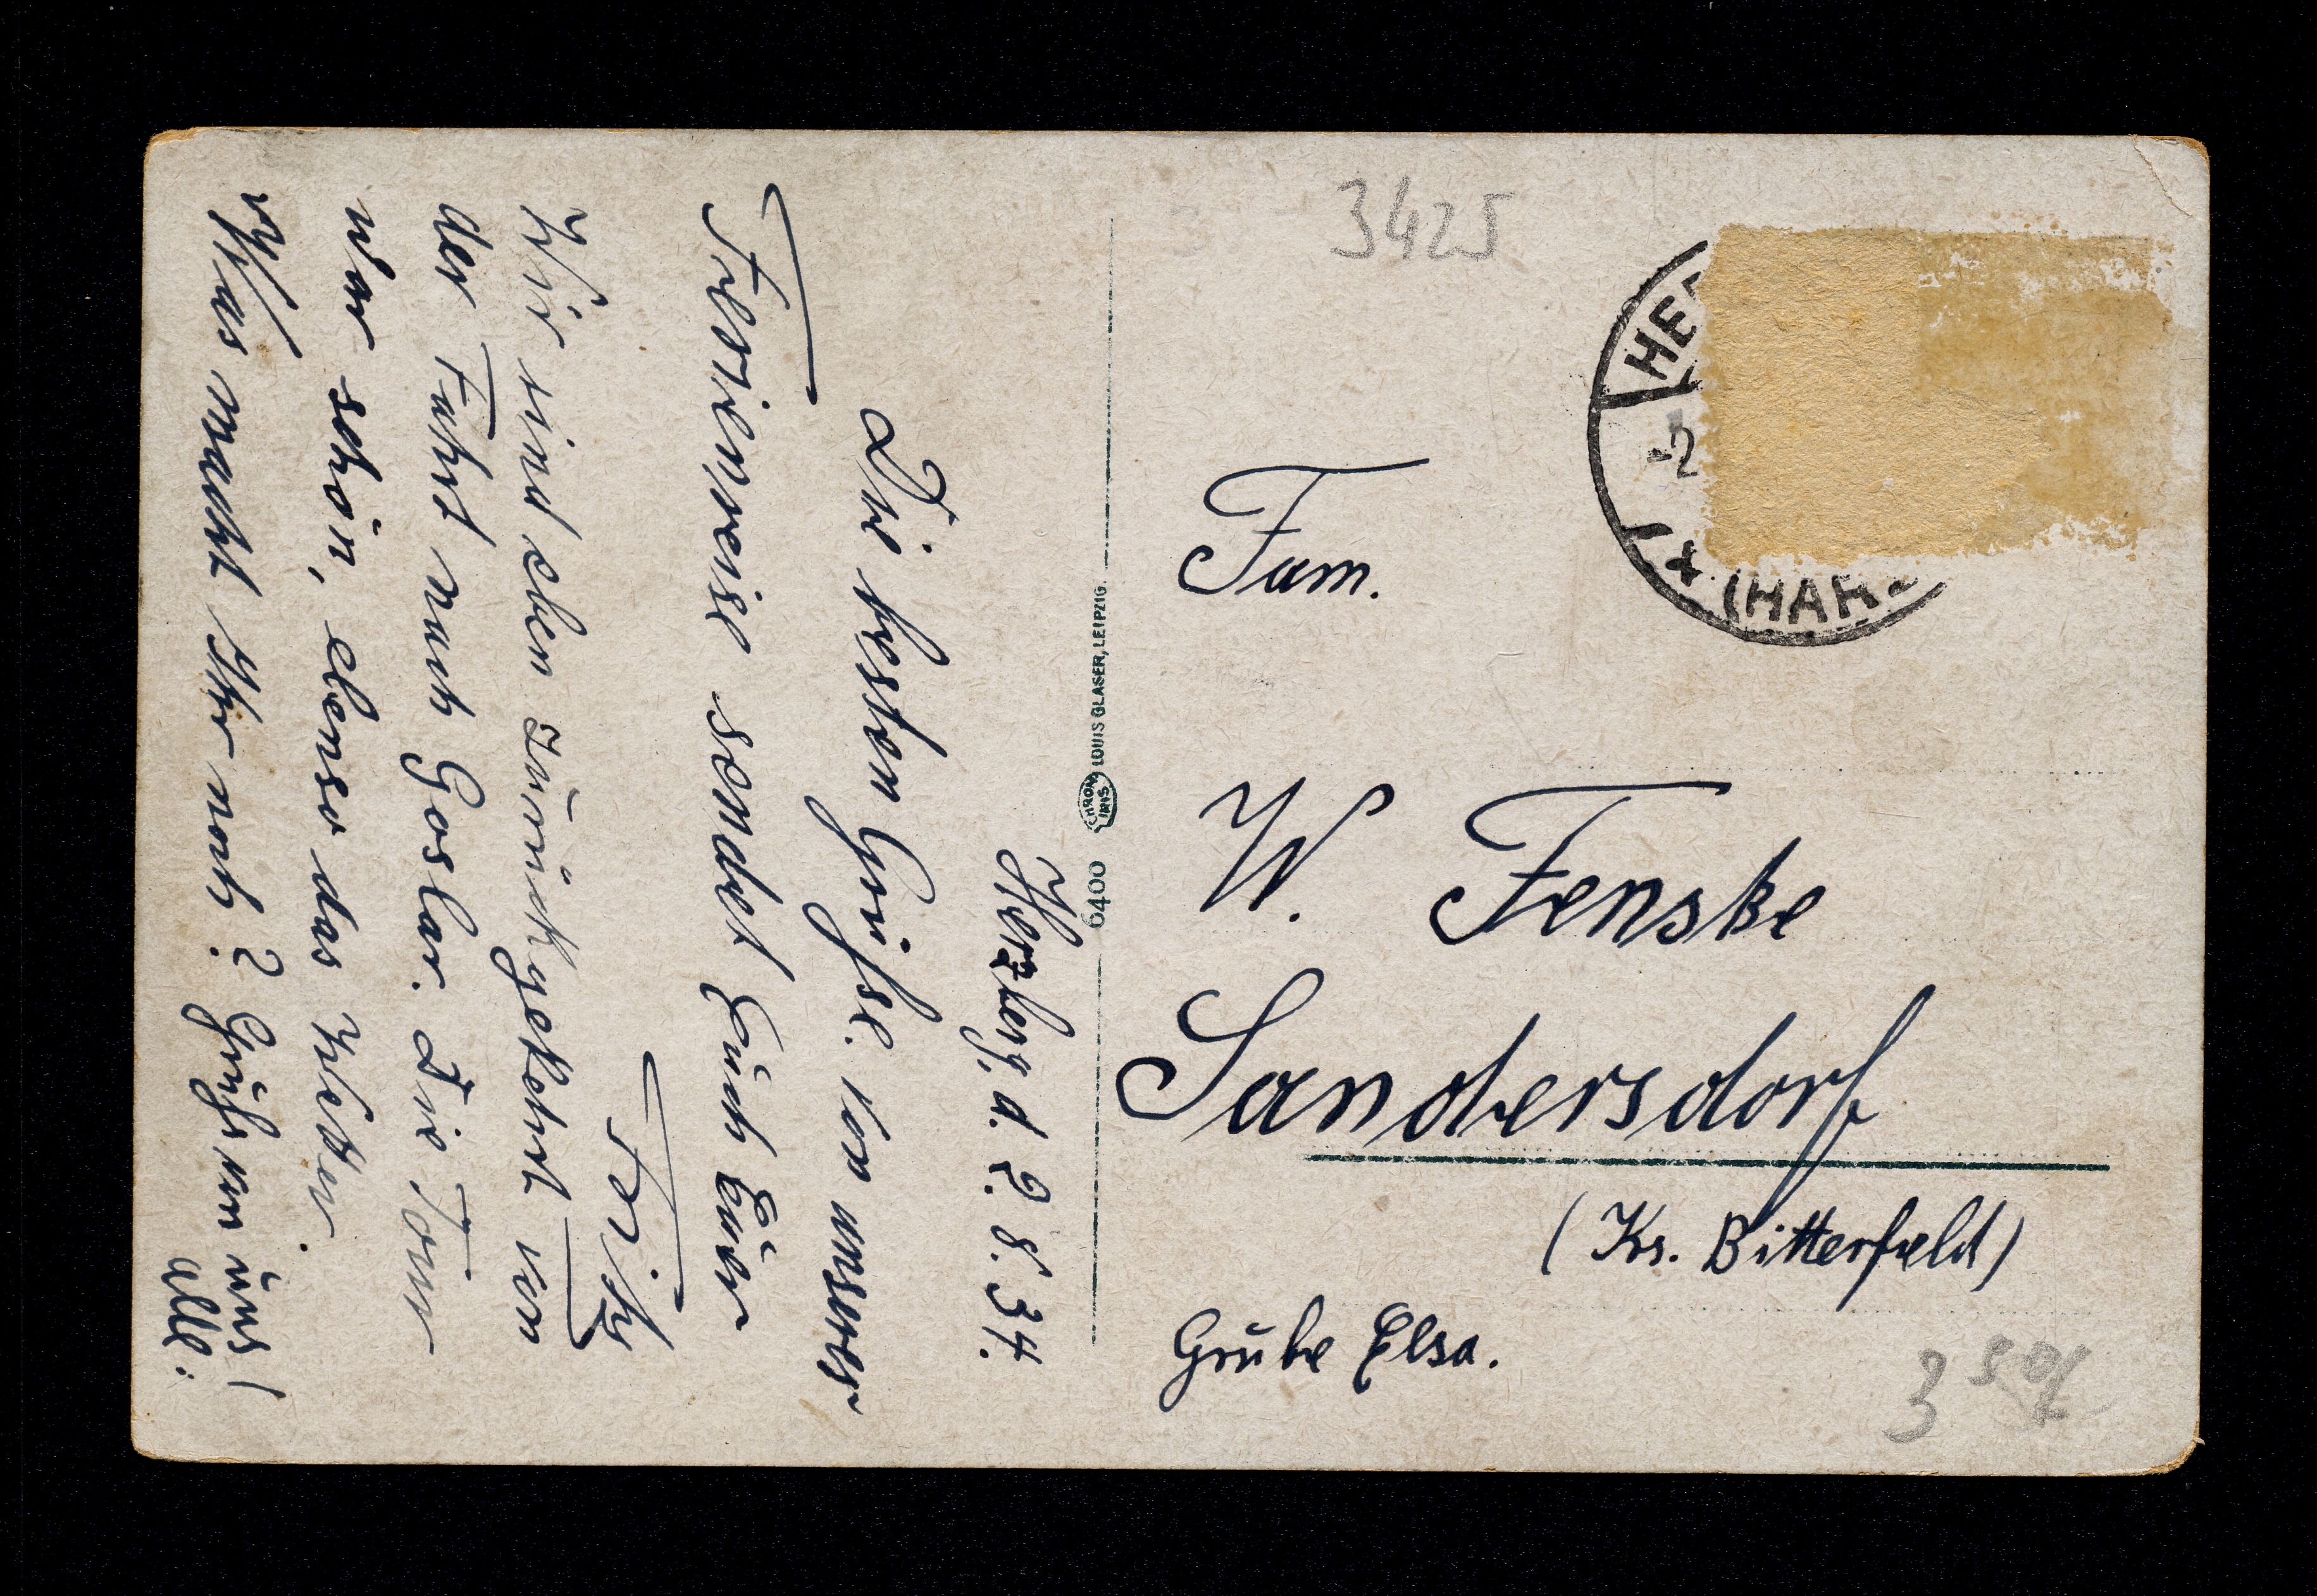 Herzberg, d. 2. 8. 34.
Die besten Grüße von unserer
Ferienreise sendet Euch Euer
Fritz
Wir sind eben zurückgekehrt von
der Fahrt nach Goslar. Die Tour
war schön, ebenso das Wetter.
Was macht Ihr noch? Grüße von uns
allen!
3425
HE
-2
(HAR
Fam.
W. Fenske
Sandersdorf
(Kr. Bitterfeld)
Grube Elsa.
CHROM IRIS LOUIS GLASER, LEIPZIG.
6400